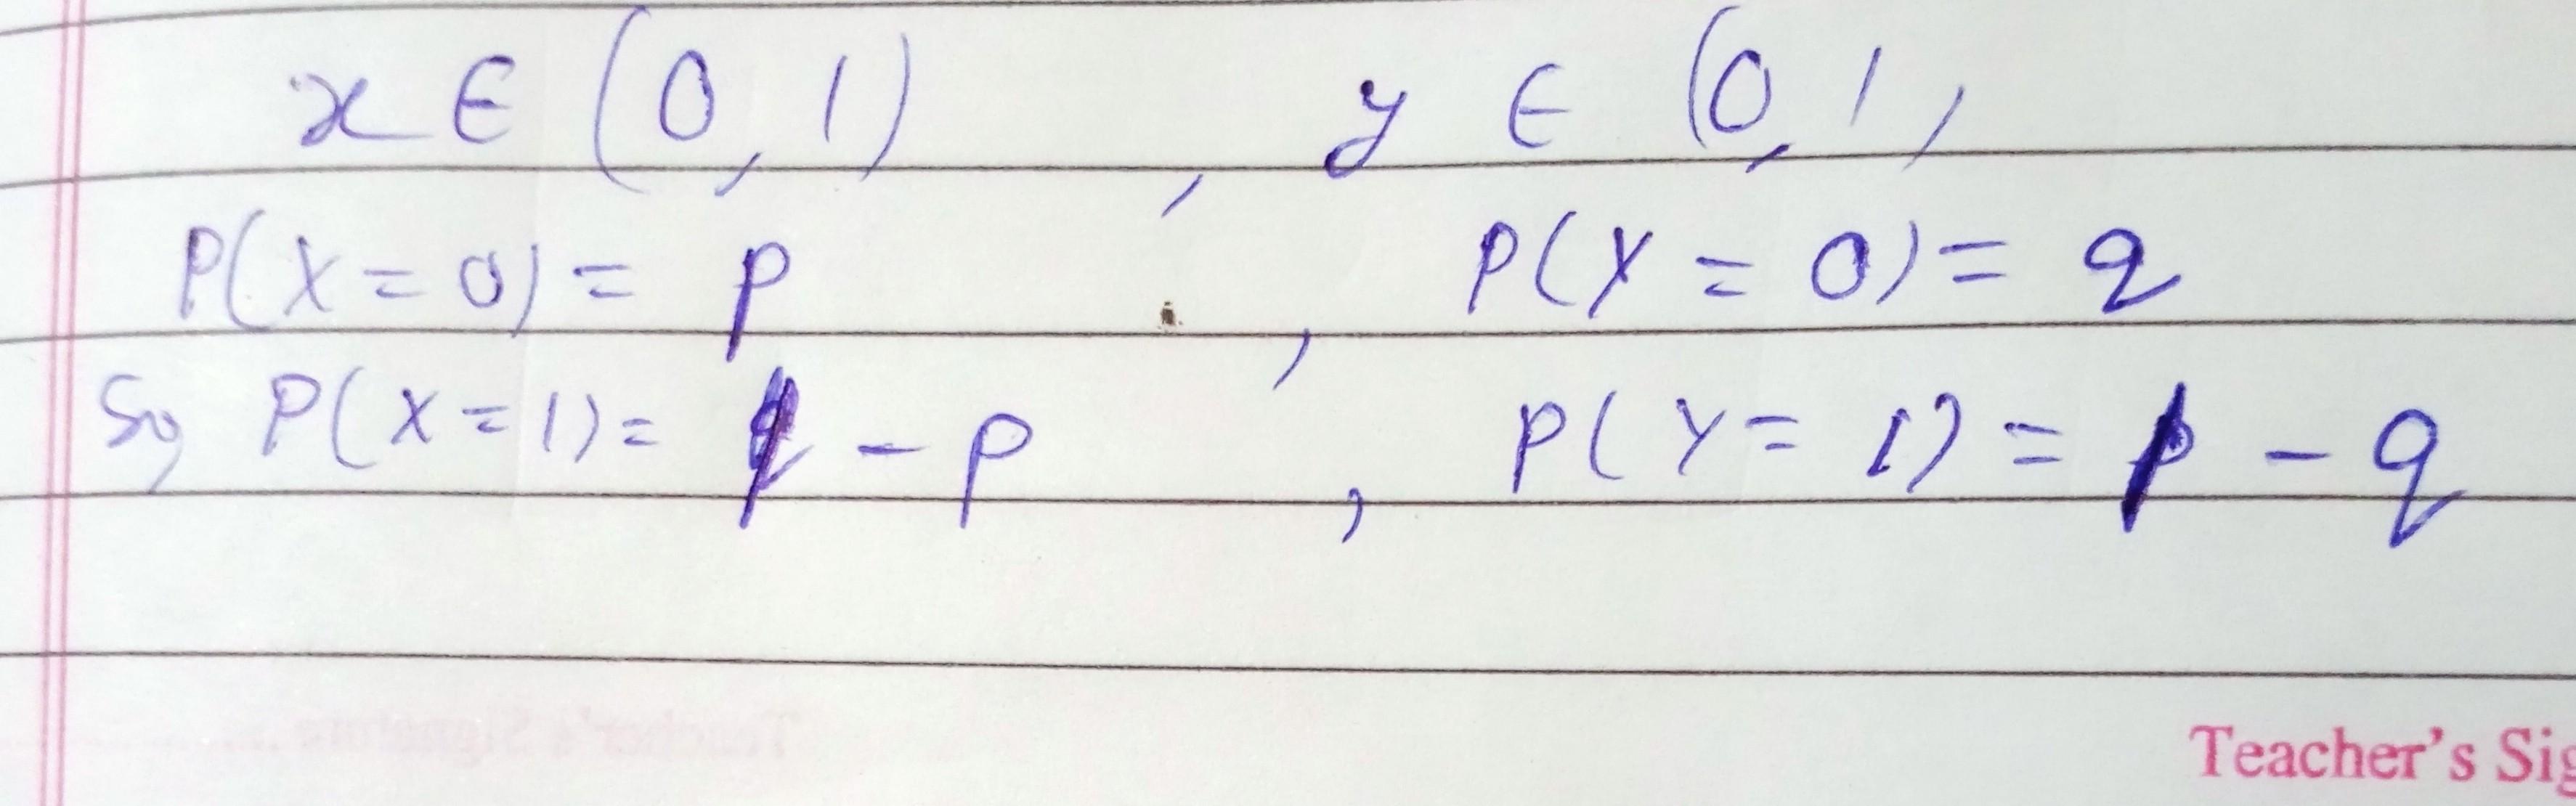 x ∈ (0, 1) , y ∈ (0, 1,
P(X = 0) = p , P(Y = 0) = q
So, P(X = 1) = - p , P(Y = 1) = - q
Teacher's Sig